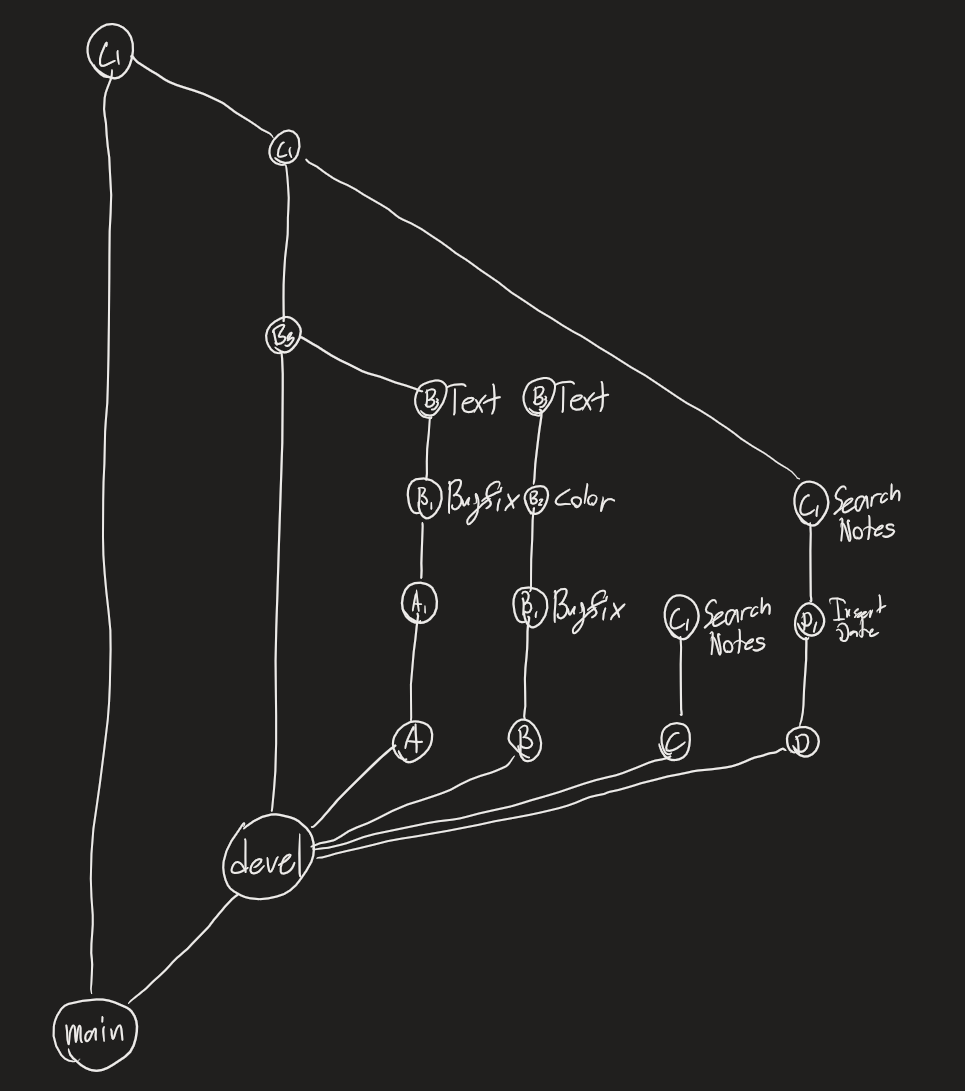 C1
C1
B3
B3 Text
B3 Text
B1 Bugfix
B2 Color
C1 Search
Notes
A1
B1 Bugfix
C1 Search
Notes
D1 Insert
Date
A
B
C
D
devel
main